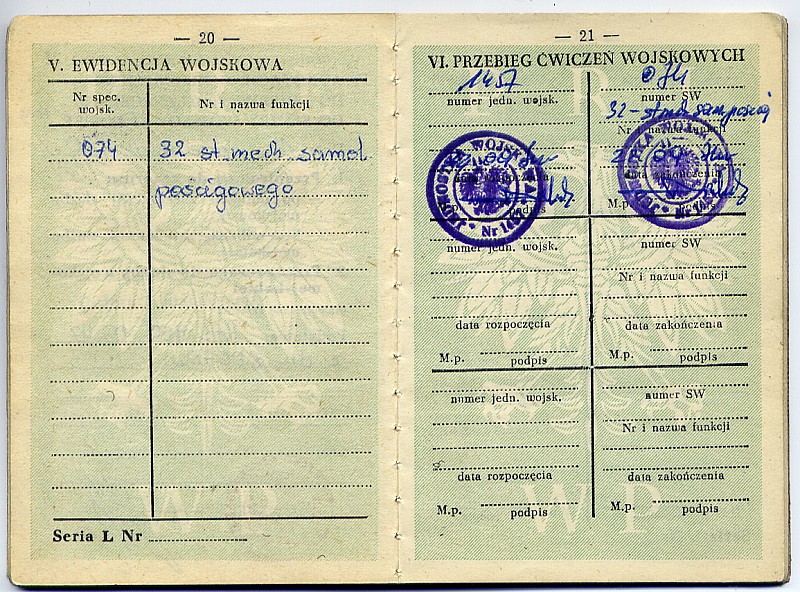 — 20 —
V. EWIDENCJA WOJSKOWA
Nr spec. wojsk.
Nr i nazwa funkcji
074
32 st mech samol
pasagowego
Seria L Nr
— 21 —
VI. PRZEBIEG ĆWICZEŃ WOJSKOWYCH
1457
numer jedn. wojsk.
074
numer SW
32-st mech sam
Nr i nazwa funkcji
JEDNOSTKA WOJSKOWA
Nr 1457
data rozpoczęcia
podpis
JEDNOSTKA WOJSKOWA
Nr
data zakończenia
M.p.
podpis
numer jedn. wojsk.
numer SW
Nr i nazwa funkcji
data rozpoczęcia
data zakończenia
M.p.
podpis
M.p.
podpis
numer jedn. wojsk.
numer SW
Nr i nazwa funkcji
data rozpoczęcia
data zakończenia
M.p.
podpis
M.p.
podpis
W P